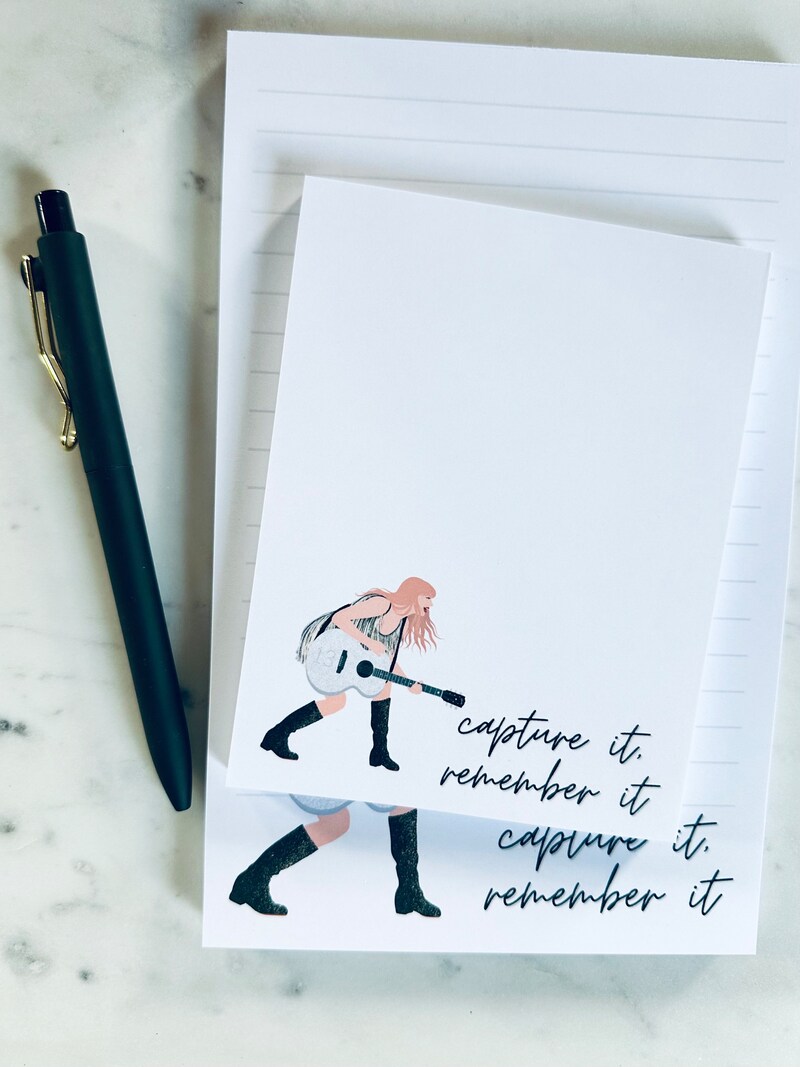 13
capture it,
remember it
capture it,
remember it